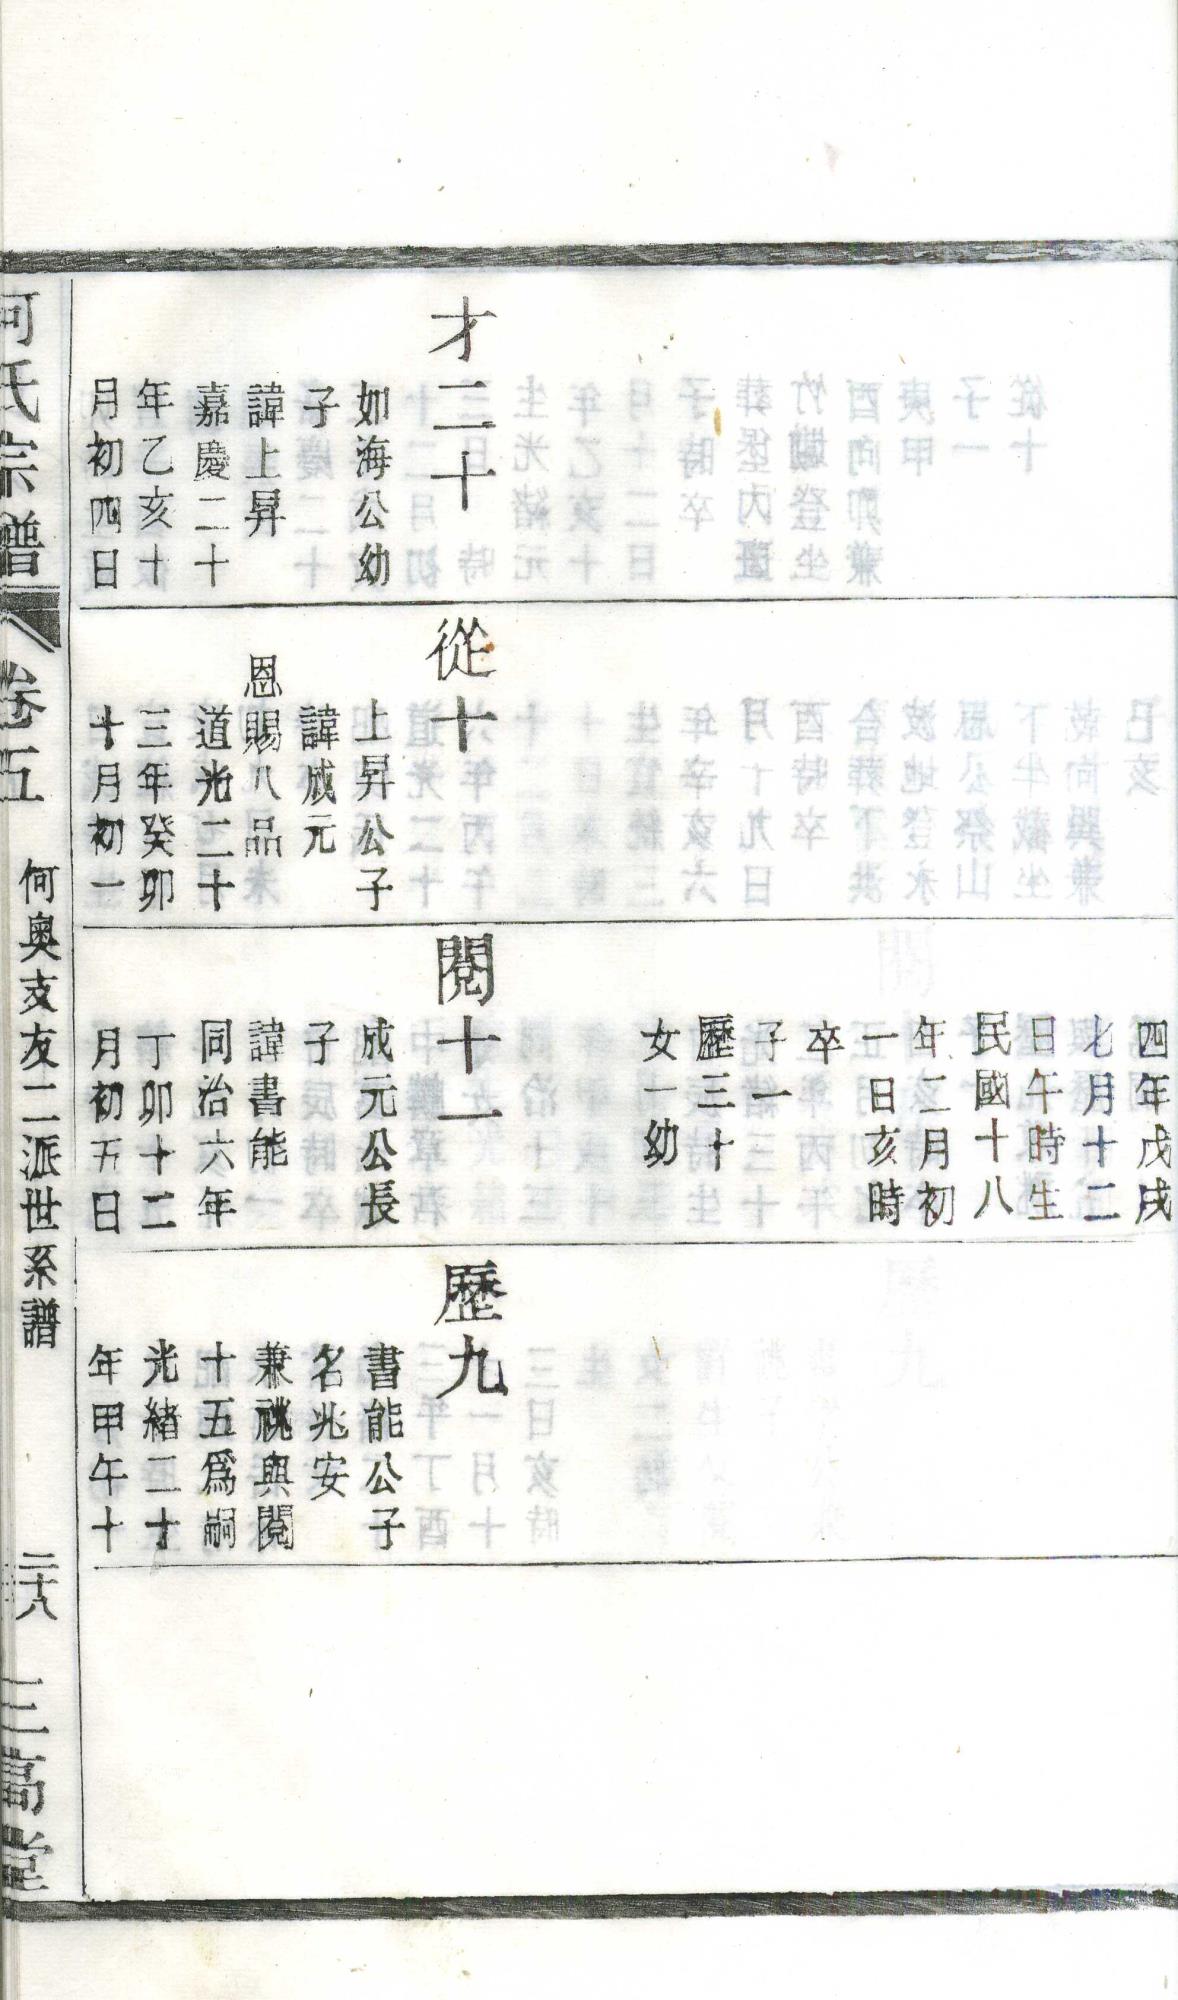 才二十
如海公幼
子
諱上昇
嘉慶二十
年乙亥十
月初四日
從十
上昇公子
諱成元
恩賜八品
道光二十
三年癸卯
十月初一
四年戊戌
七月十二
日午時生
民國十八
年二月初
一日亥時
卒
子一
歷三十
女一幼
閱十一
成元公長
子
諱書能
同治六年
丁卯十二
月初五日
歷九
書能公子
名兆安
兼祧與閱
十五爲嗣
光緒二十
年甲午十
何氏宗譜
卷五
何奧支友二派世系譜
二十八
三高堂